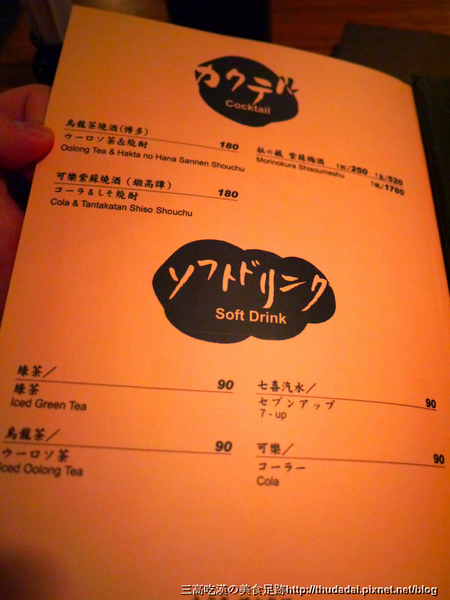 カクテル
Cocktail
烏龍茶燒酒(博多) 180
ウーロン茶&焼酎
Oolong Tea & Hakta no Hana Sannen Shouchu
杜の蔵 紫蘇梅酒 1杯/250 1壺/520
Morinokura Shisoumeshu 1瓶/1780
可樂紫蘇燒酒(鍛高譚) 180
コーラ&しそ焼酎
Cola & Tantakatan Shiso Shouchu
ソフトドリンク
Soft Drink
綠茶/ 90
緑茶
Iced Green Tea
七喜汽水/ 90
セブンアップ
7-up
烏龍茶/ 90
ウーロソ茶
Iced Oolong Tea
可樂/ 90
コーラー
Cola
三高吃漢の美食足跡http://thudadai.pixnet.net/blog